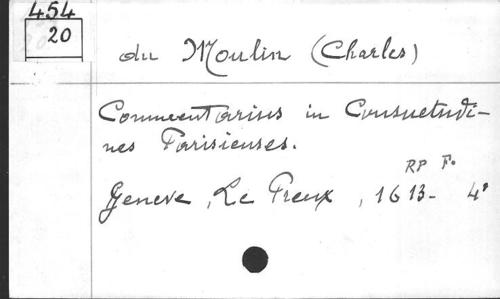 454
20
du Moulin (Charles)
Commentarius in Consuetudi-
nes Parisienses.
RP Fo
Geneve, Le Preux, 1613- 4°